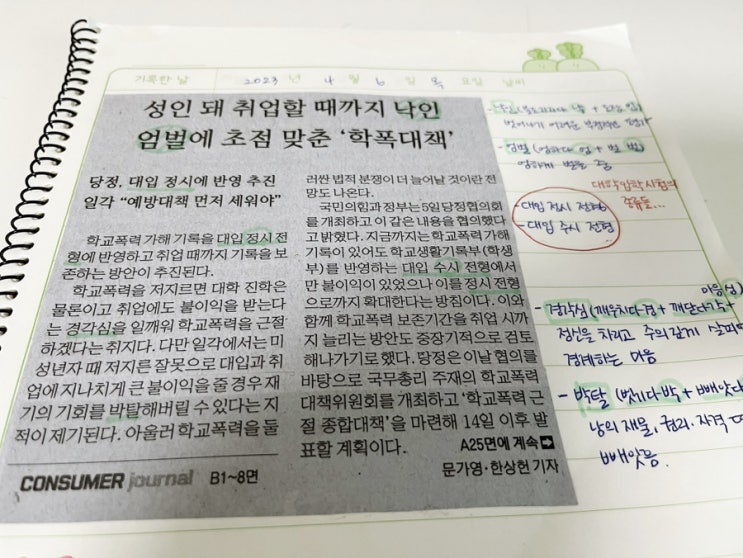 기록한 날 2023 년 4 월 6 일 목 요일 날씨
성인 돼 취업할 때까지 낙인
엄벌에 초점 맞춘 ‘학폭대책’
당정, 대입 정시에 반영 추진
일각 “예방대책 먼저 세워야”
학교폭력 가해 기록을 대입 정시 전
형에 반영하고 취업 때까지 기록을 보
존하는 방안이 추진된다.
학교폭력을 저지르면 대학 진학은
물론이고 취업에도 불이익을 받는다
는 경각심을 일깨워 학교폭력을 근절
하겠다는 취지다. 다만 일각에서는 미
성년자 때 저지른 잘못으로 대입과 취
업에 지나치게 큰 불이익을 줄 경우 재
기의 기회를 박탈해버릴 수 있다는 지
적이 제기된다. 아울러 학교폭력을 둘
러싼 법적 분쟁이 더 늘어날 것이란 전
망도 나온다.
국민의힘과 정부는 5일 당정협의회
를 개최하고 이 같은 내용을 협의했다
고 밝혔다. 지금까지는 학교폭력 가해
기록이 있어도 학교생활기록부(학생
부)를 반영하는 대입 수시 전형에서
만 불이익이 있었으나 이를 정시 전형
으로까지 확대한다는 방침이다. 이와
함께 학교폭력 보존기간을 취업 시까
지 늘리는 방안도 중장기적으로 검토
해나가기로 했다. 당정은 이날 협의를
바탕으로 국무총리 주재의 학교폭력
대책위원회를 개최하고 ‘학교폭력 근
절 종합대책’을 마련해 14일 이후 발
표할 계획이다.
A25면에 계속
문가영·한상헌 기자
CONSUMER journal B1~8면
벗어나기 어려운 부정적인
- 엄벌 (엄하다 엄 + 벌 벌)
엄하게 벌을 줌
대학입학시험의
종류들...
- 대입 정시 전형
- 대입 수시 전형
- 경각심 (깨우치다 경 + 깨닫다 각 +
마음 심)
정신을 차리고 주의깊게 살피며
경계하는 마음
- 박탈 (벗기다 박 + 빼앗다
남의 재물, 권리, 자격
빼앗음.